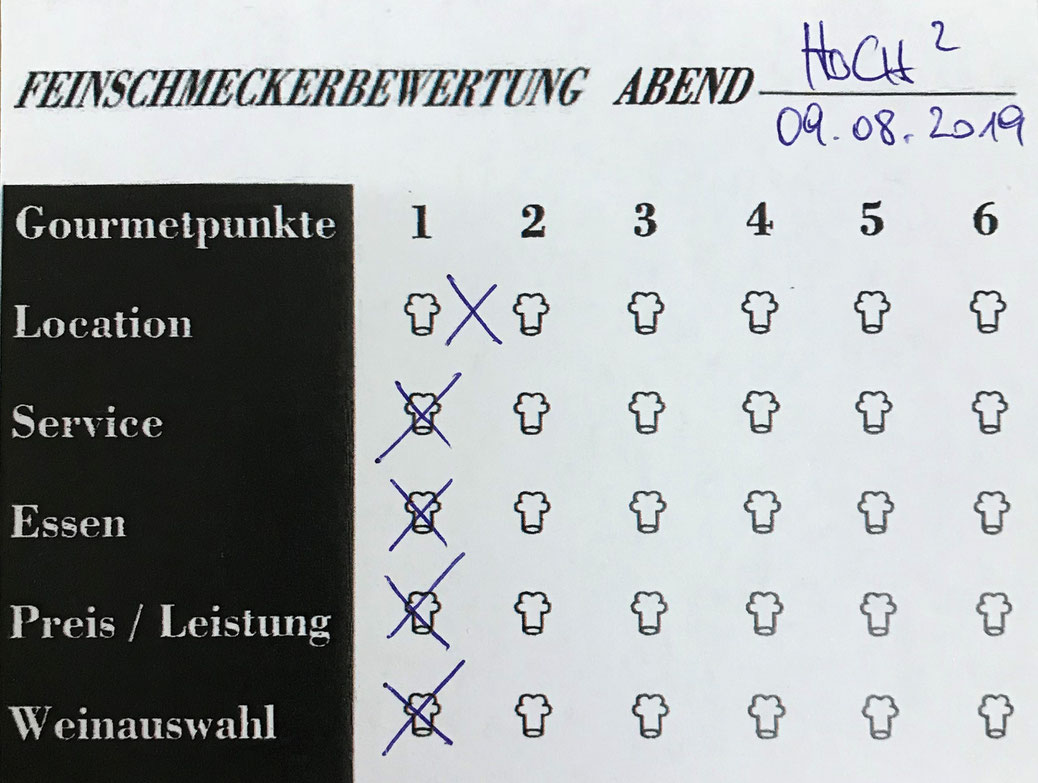 FEINSCHMECKERBEWERTUNG ABEND HOCH²
09.08.2019
Gourmetpunkte 1 2 3 4 5 6
Location
Service
Essen
Preis / Leistung
Weinauswahl